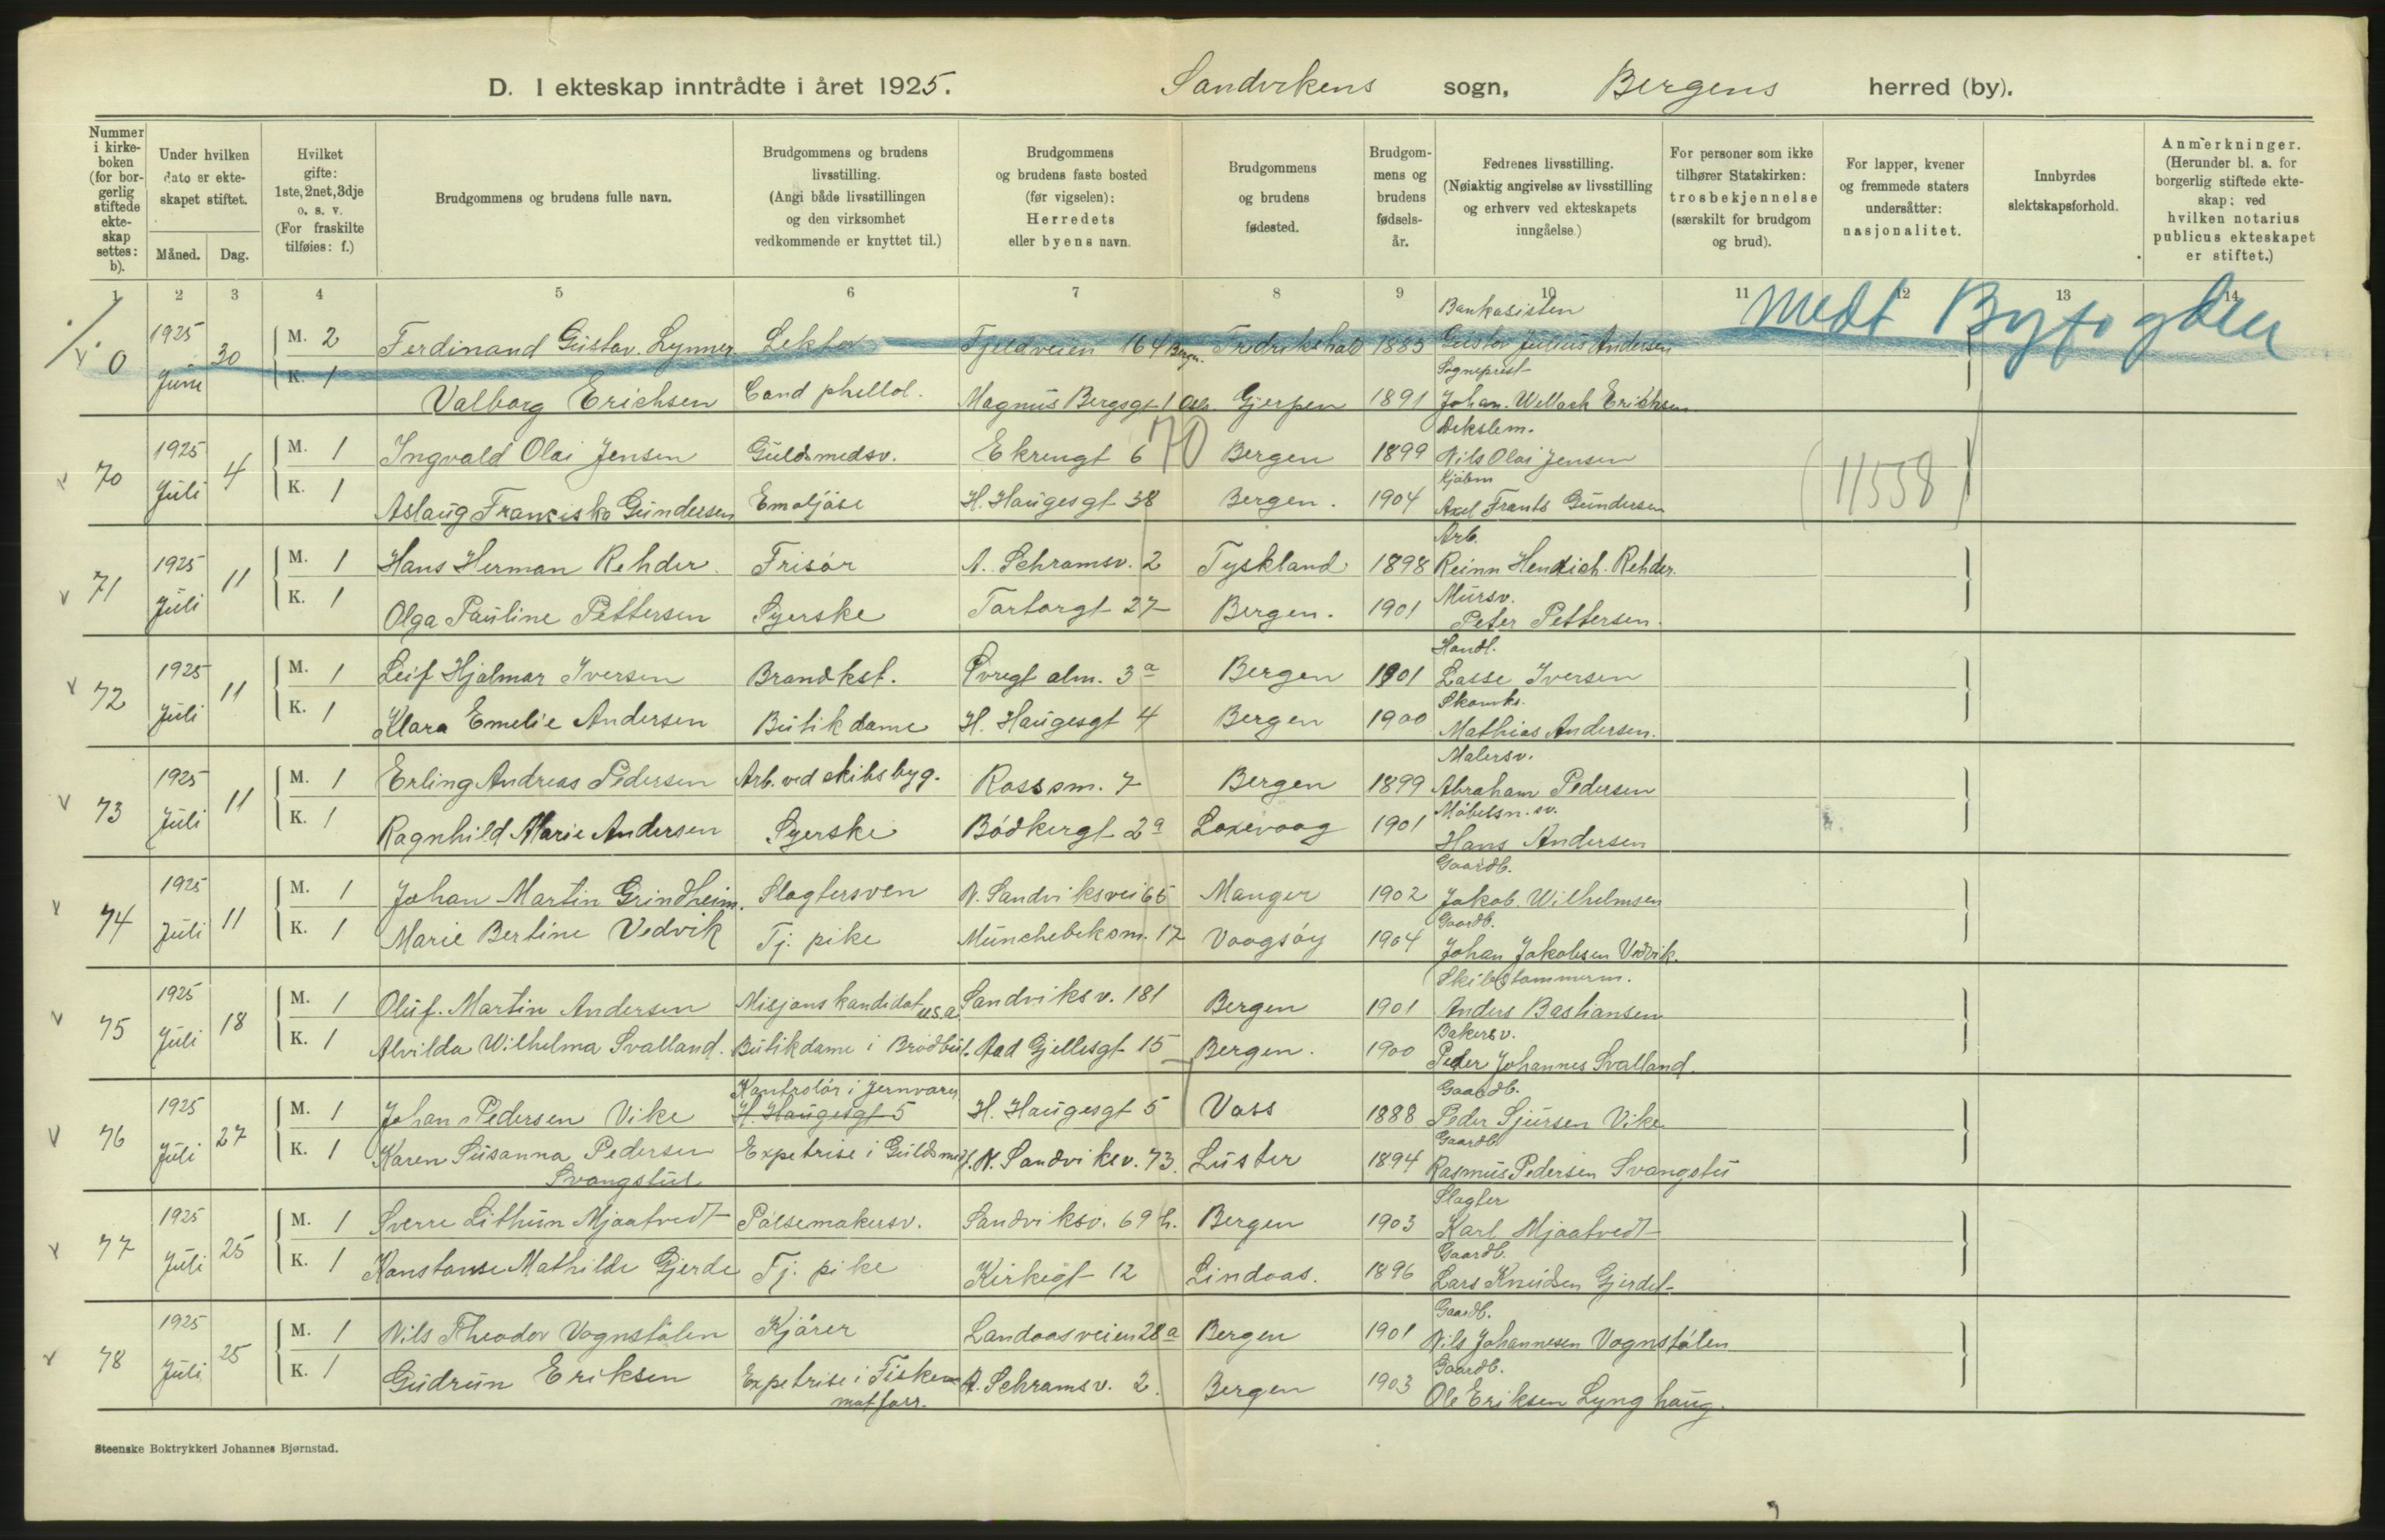 D. I ekteskap inntrådte i året 1925. Sandvikens sogn, Bergens herred (by).
Nummer i kirkeboken (for borgerlig stiftede ekteskap settes: b).
Under hvilken dato er ekteskapet stiftet.
Måned. Dag.
Hvilket gifte: 1ste, 2net, 3dje o. s. v. (For fraskilte tilføies: f.)
Brudgommens og brudens fulle navn.
Brudgommens og brudens livsstilling. (Angi både livsstillingen og den virksomhet vedkommende er knyttet til.)
Brudgommens og brudens faste bosted (før vigselen): Herredets eller byens navn.
Brudgommens og brudens fødested.
Brudgommens og brudens fødselsår.
Fedrenes livsstilling. (Nøiaktig angivelse av livsstilling og erhverv ved ekteskapets inngåelse.)
For personer som ikke tilhører Statskirken: trosbekjennelse (særskilt for brudgom og brud).
For lapper, kvener og fremmede staters undersåtter: nasjonalitet.
Innbyrdes slektskapsforhold.
Anmerkninger. (Herunder bl. a. for borgerlig stiftede ekteskap: ved hvilken notarius publicus ekteskapet er stiftet.)
1 2 3 4 5 6 7 8 9 10 11 12 13 14
medt Byfogden
Bankasisten
0 1925 Juni 30 M. 2 Ferdinand Gustav Lynner Lektor Fjeldveien 164 Bergen. Fredrikshald 1885 Gustav Julius Andersen
Sogneprest
K. 1 Valborg Erichsen Cand phillol. Magnus Bergsgt 1 Oslo Gjerpen 1891 Johan Wellack Erichsen
70
Dekslem.
70 1925 Juli 4 M. 1 Ingvald Olai Jensen Guldsmedsv. Ekrengt 6 Bergen 1899 Nils Olai Jensen
(11558)
Kjøbm
K. 1 Aslaug Franciska Gundersen Emaljøse H. Haugesgt 38 Bergen. 1904 Axel Frants Gundersen
Arb.
71 1925 Juli 11 M. 1 Hans Herman Rehder. Frisør A. Schramsv. 2 Tyskland 1898 Reinn Hendrich. Rehder.
Mursv.
K. 1 Olga Pauline Pettersen Syerske Tartargt 27 Bergen. 1901 Peter Pettersen.
Handl.
72 1925 Juli 11 M. 1 Leif Hjalmar Iversen Brandkst. Øvregt alm. 3a Bergen 1901 Lasse Iversen
Skomks.
K. 1 Klara Emelie Andersen Butikdame H. Haugesgt 4 Bergen 1900 Mathias Andersen.
Malersv.
73 1925 Juli 11 M. 1 Erling Andreas Pedersen Arb. ved skibsbyg. Rossm. 7 Bergen 1899 Abraham Pedersen
Møbelsn. sv.
K. 1 Ragnhild Marie Andersen Syerske Bødkergt 2a Laxevaag 1901 Hans Andersen
Gaardb.
74 1925 Juli 11 M. 1 Johan Martin Grindheim. Slagtersven N. Sandviksvei 65 Manger 1902 Jakob. Wilhelmsen
Gaardb.
K. 1 Marie Bertine Vedvik Tj. pike Münchebeksm. 17 Vaagsøy 1904 Johan Jakobsen Vedvik.
Skibstømmerm.
75 1925 Juli 18 M. 1 Oluf. Martin Andersen Misjonskandidat u.s.a. Sandviksv. 181 Bergen 1901 Anders Bastiansen
Bakersv.
K. 1 Alvilda Wilhelma Svalland. Butikdame i Brødbut. Aad Gjellesgt 15 Bergen. 1900 Peder Johannes Svalland.
Kontrolør i Jernvarer Gaardb.
76 1925 Juli 27 M. 1 Johan Pedersen Vike H. Haugesgt 5 H. Haugesgt 5 Voss 1888 Peder Sjursen Vike
Gaardb
K. 1 Karen Susanna Pedersen Expetrise i Guldsmedf. N. Sandviksv. 73. Luster 1894 Rasmus Pedersen Svangstu
Svangstu
Slagter
77 1925 Juli 25 M. 1 Sverre Lithun Mjaatvedt Pølsemakersv. Sandviksv. 69 b. Bergen 1903 Karl Mjaatvedt
Gaardb.
K. 1 Konstanse Mathilde Gjerde Tj. pike Kirkegt 12 Lindaas. 1896 Lars Knudsen Gjerdet
Gaardb.
78 1925 Juli 25 M. 1 Nils Theodor Vognstølen Kjører Landaasveien 28a Bergen 1901 Nils Johannesen Vognstølen
Gaardb.
K. 1 Gudrun Eriksen Expetrise i Fiske A. Schramsv. 2. Bergen 1903 Ole Eriksen Lynghaug.
matforr.
Steenske Boktrykkeri Johannes Bjørnstad.